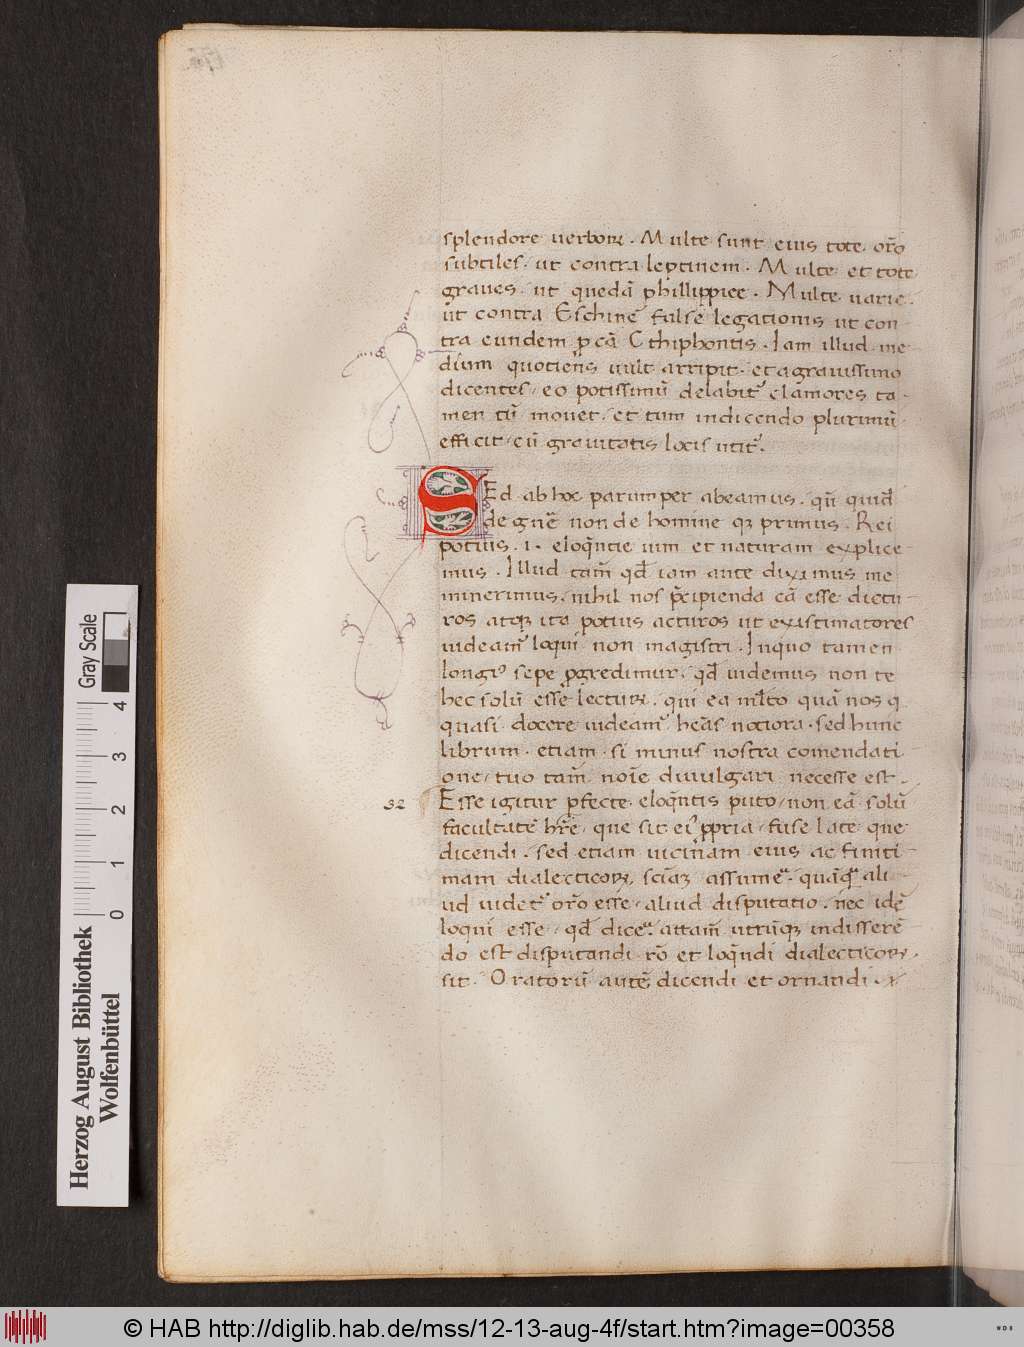 splendore uerboꝝ. Multe sunt eius tote. or̄o
subtiles. ut contra leptinem. Multe et tote
graues. ut quedā phillippice. Multe uarie.
ut contra Eschinē false legationis ut con-
tra eundem ꝑ cā Cthiphontis. Iam illud me
dium quotiens uult arripit. et a grauissimo
dicentes / eo potissimū delabit᷑ clamores ta-
men tū mouet. et tum indicendo plurimū
efficit / cū grauitatis locis utit᷑.
SEd ab hoc parumper abeamus. qn̄ quidē
de gn̄e non de homine qꝫ primus. Rei
potius .i. eloq̄ntie uim et naturam explice
mus. Illud tam̄ qd̄ iam ante diximus me
minerimus. nihil nos p̄cipienda cā esse dictu-
ros atqꝫ ita potius acturos ut existimatores
uideam᷑ loqui non magistri. Inquo tamen
longi᷒ sepe ꝓgredimur. qd̄ uidemus non te
hec solū esse lecturꝝ. qui ea ml̄to quā nos q̄
quasi docere uideam᷑ heās notiora. sed hunc
librum. etiam si minus nostra comendati
one / tuo tam̄ noīe diuulgari necesse est.
32 Esse igitur ꝑfecte eloq̄ntis puto / non eā solū
facultatē hr̄e / que sit ei᷒ ꝓpria / fuse late que
dicendi. sed etiam uicinam eius ac finiti
mam dialecticoꝝ sciāꝫ assume᷑. quāqᷓ ali
ud uidet᷑ or̄o esse / aliud disputatio. nec idē
loqui esse / qd̄ dice᷑. attam̄ utrūqꝫ indisserē
do est disputandi rō et loq̄ndi dialecticoꝝ.
sit. Oratorū autē dicendi et ornandi. x
Gray Scale
0 1 2 3 4
Herzog August Bibliothek
Wolfenbüttel
© HAB http://diglib.hab.de/mss/12-13-aug-4f/start.htm?image=00358